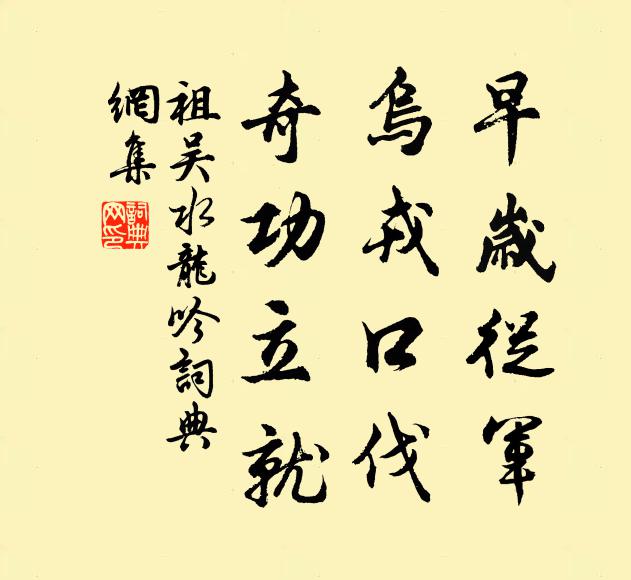 早歲從軍
烏戎口伐
奇功立就
祖吴水龍吟詞典
網集
詞典
网印